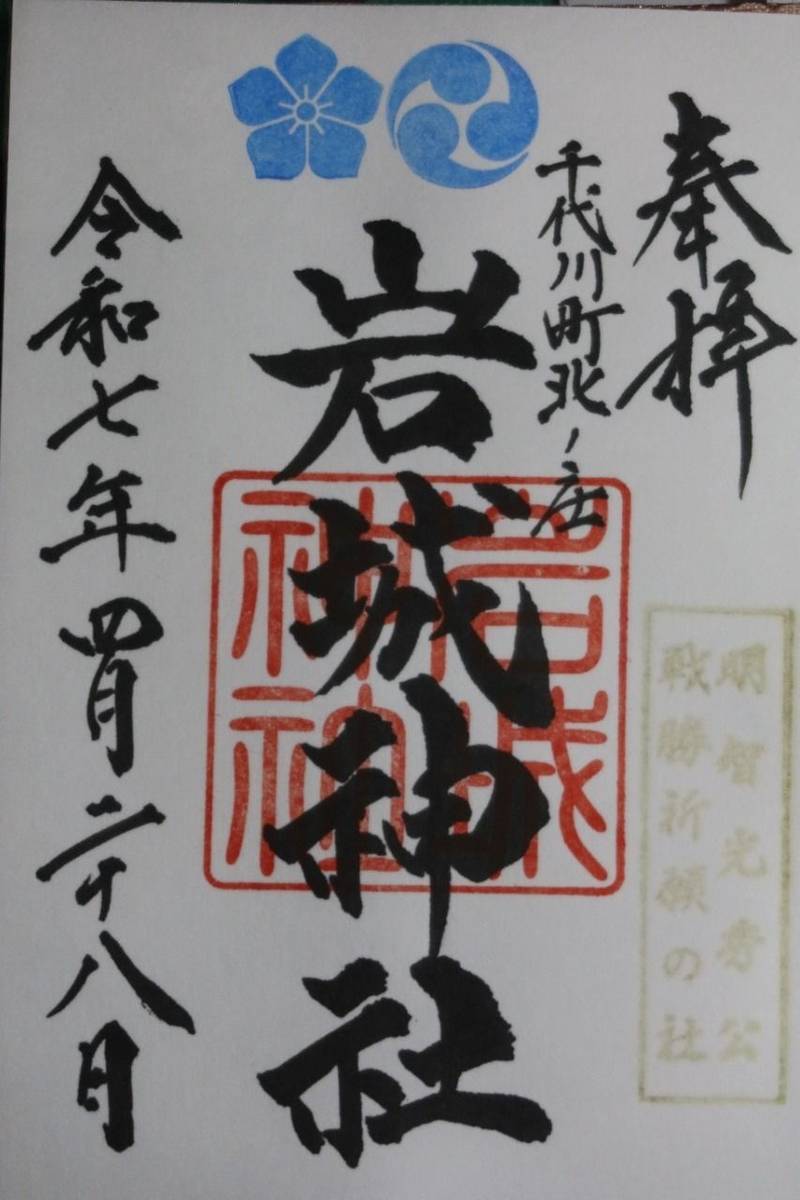 奉拝
千代川町北ノ庄
岩城神社
岩城
神社
明智光秀公
戦勝祈願の社
令和七年四月二十八日